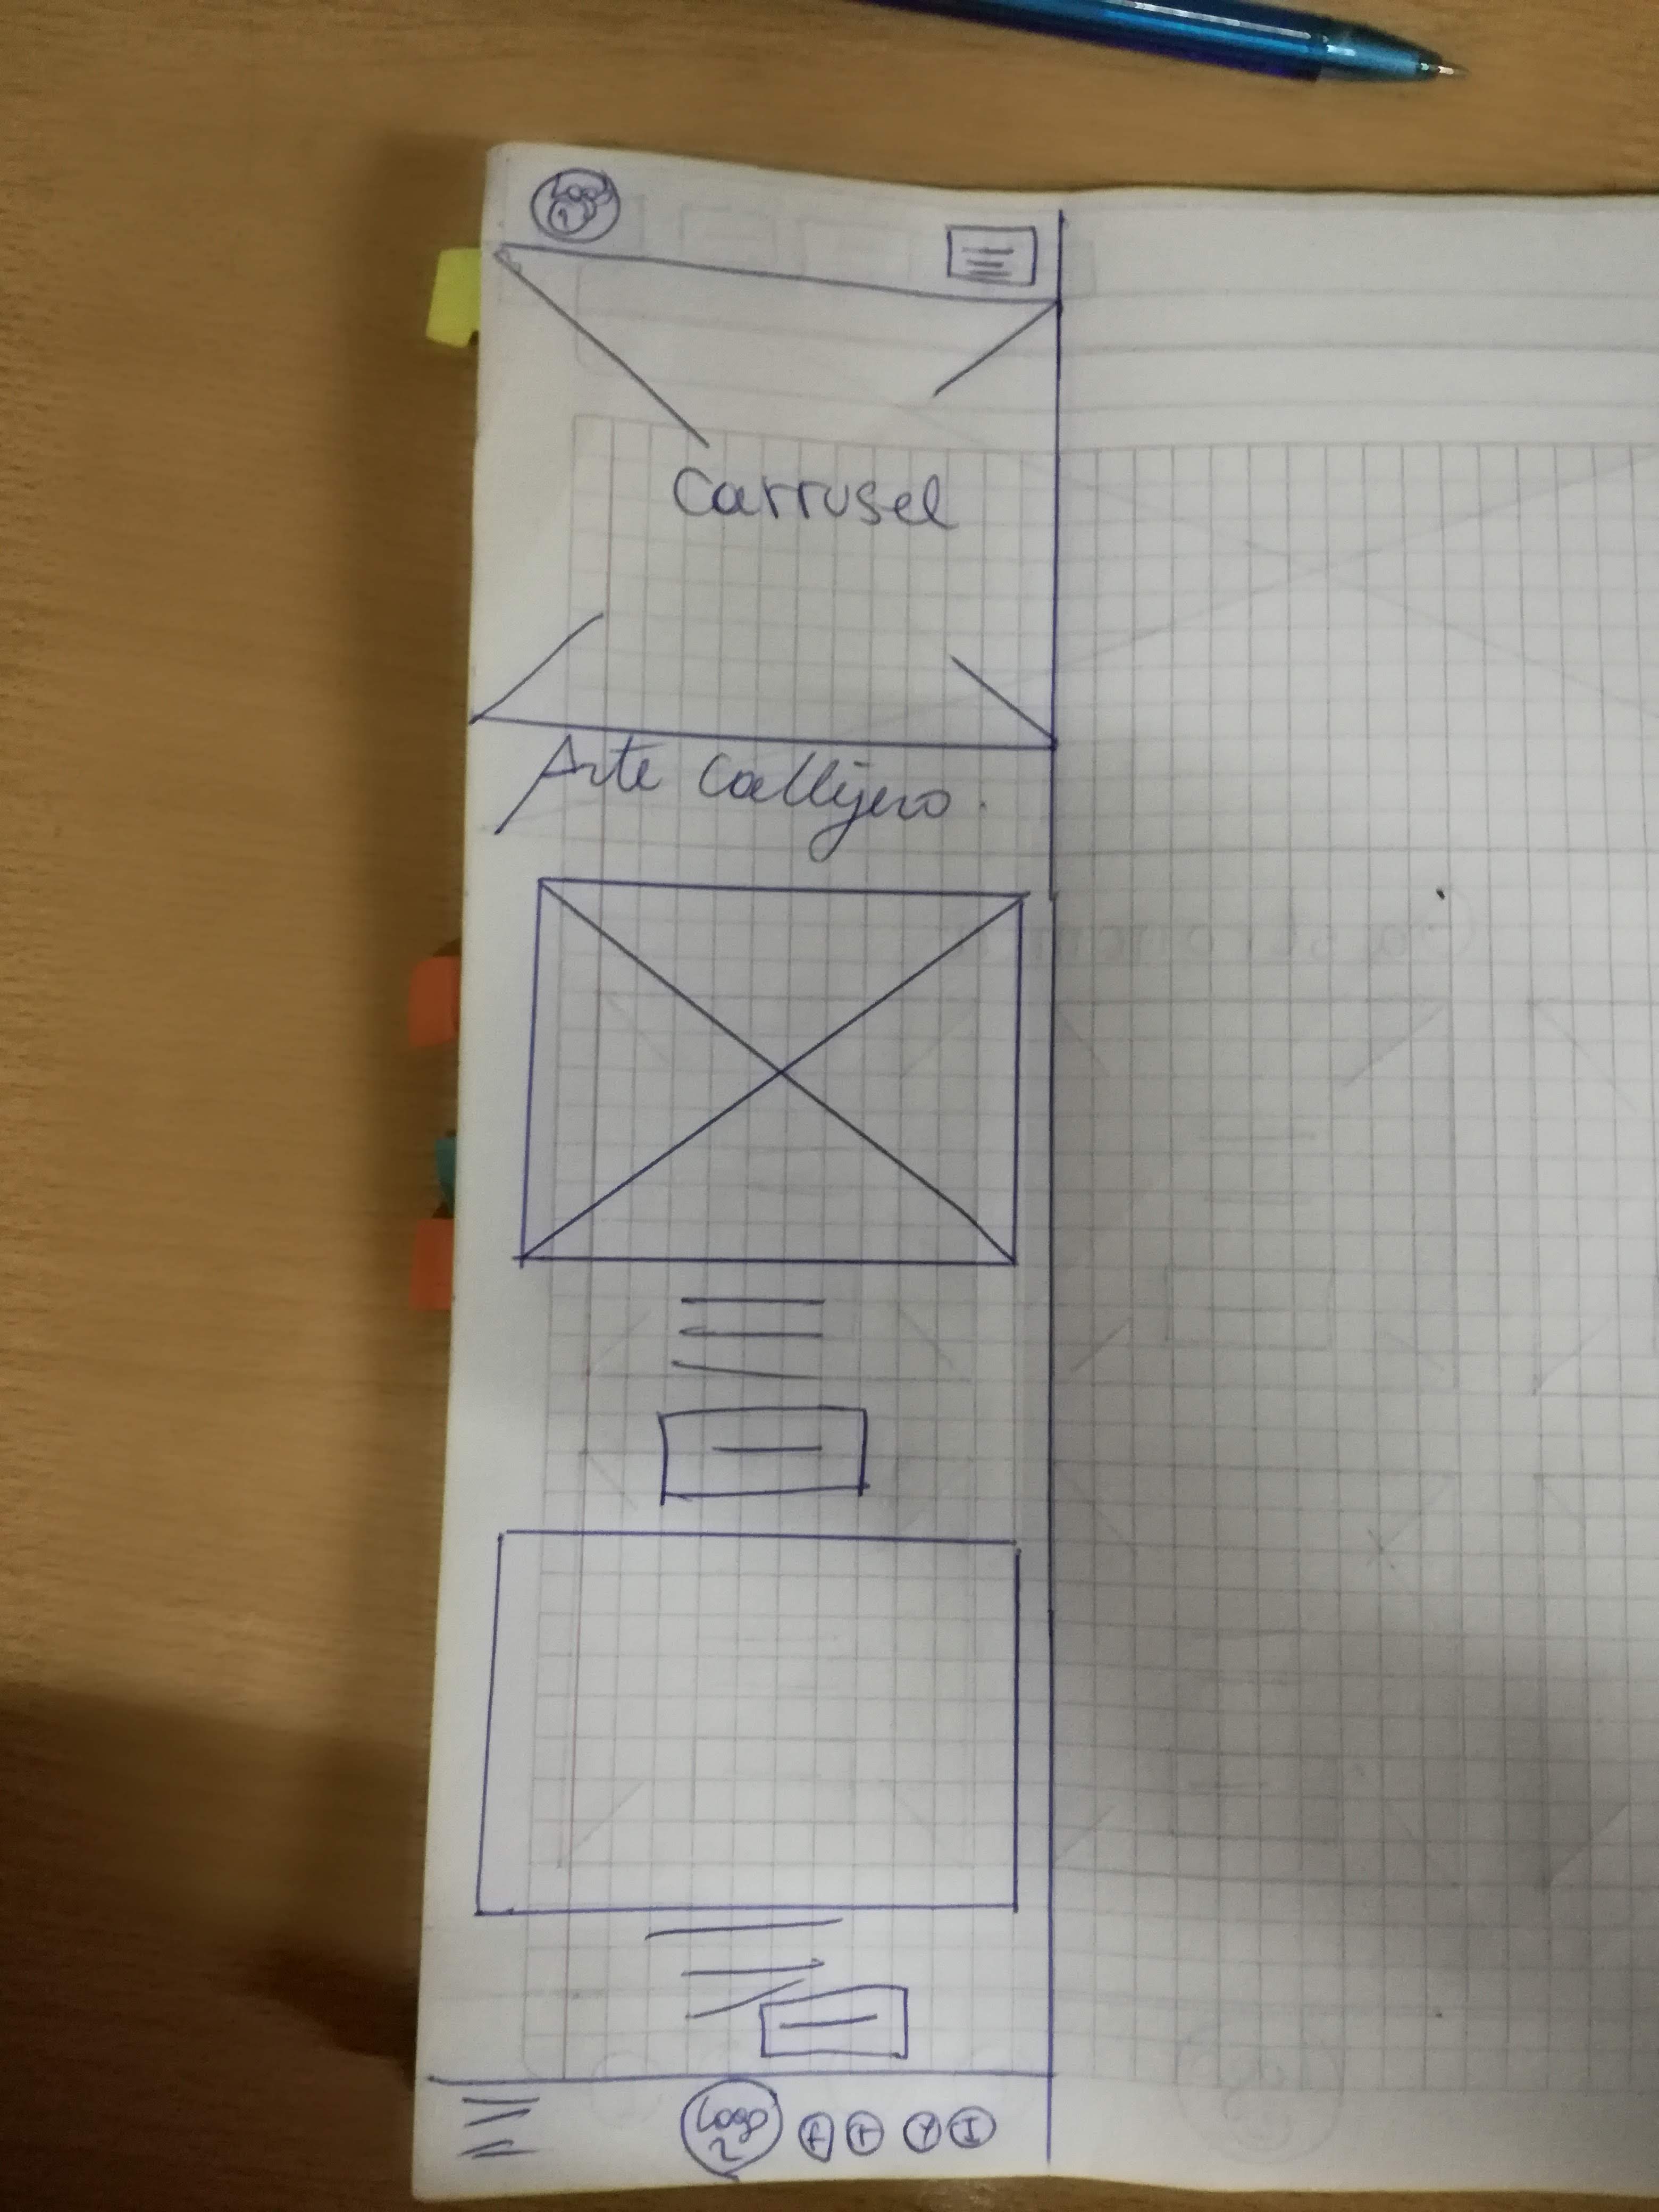 1
Carrusel
Arte Callejero
Logo
2
F T Y I